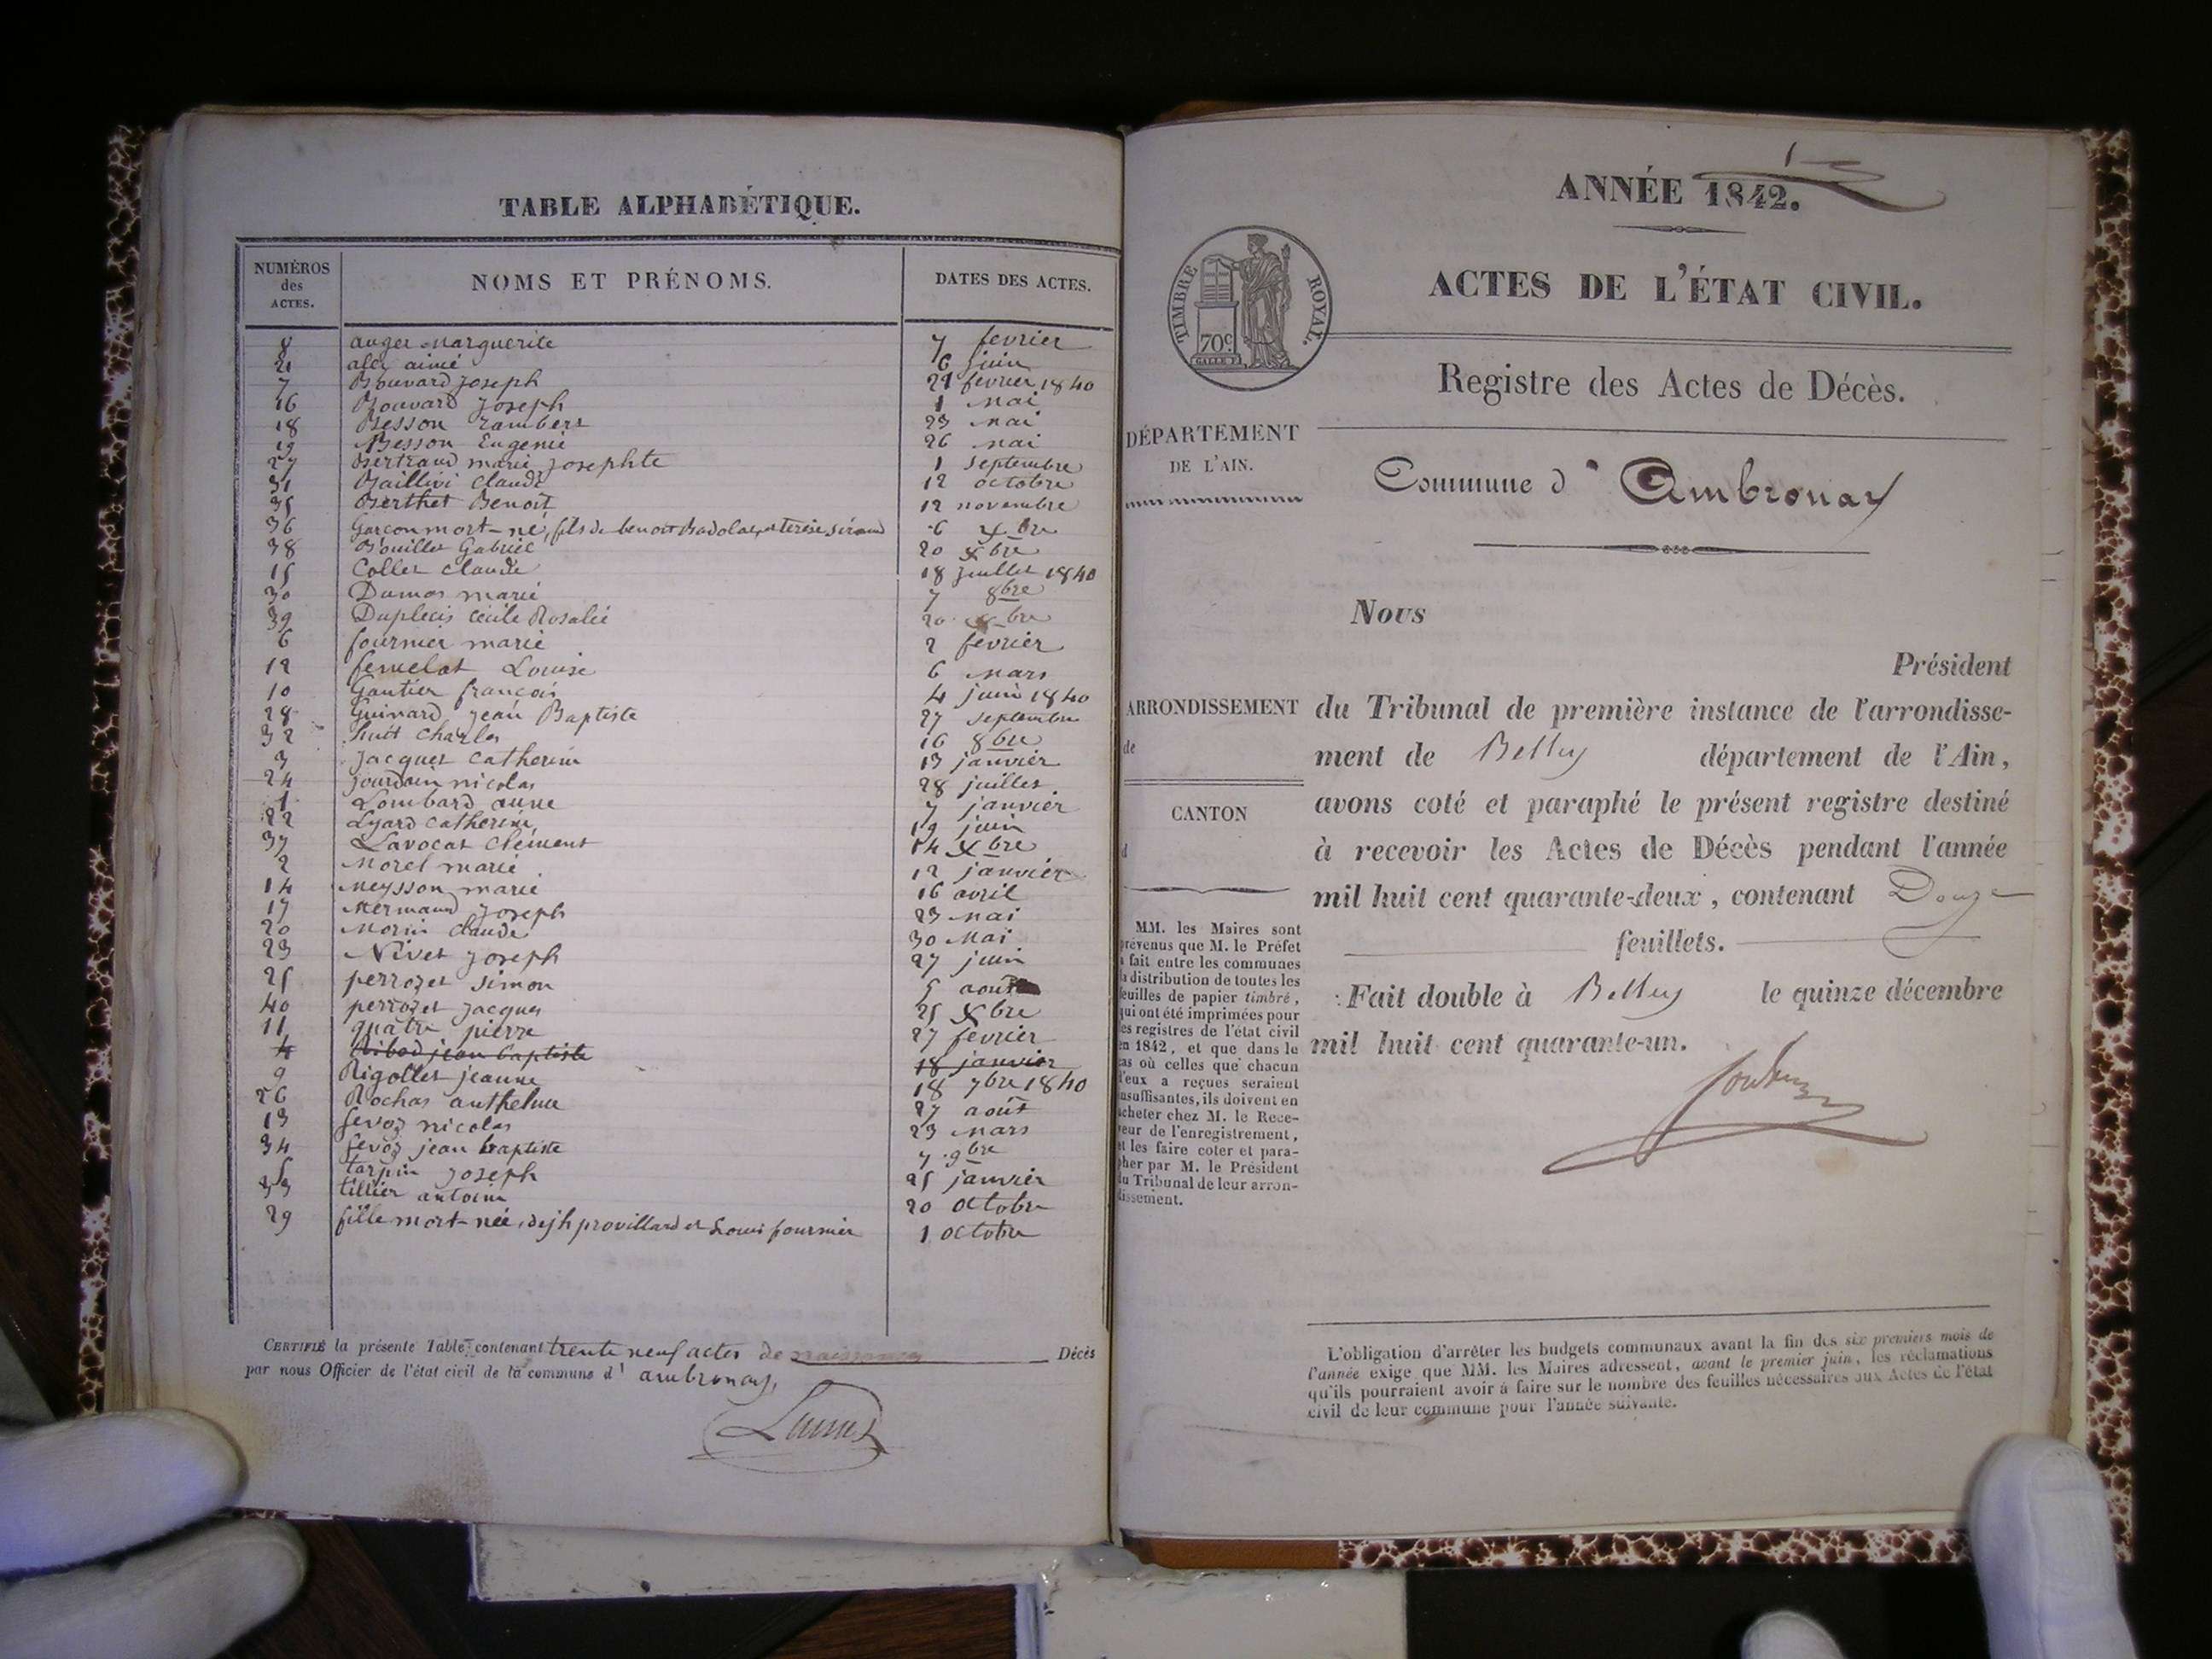 TABLE ALPHABÉTIQUE.
NUMÉROS des ACTES. NOMS ET PRÉNOMS. DATES DES ACTES.
8 auger Marguerite 7 fevrier
21 alex aimé 6 juin
7 Bouvard Joseph 21 fevrier 1840
16 Bouvard Joseph 1 Mai
18 Besson Rambert 23 Mai
19 Besson Eugenie 26 Mai
27 Bertrand marie josephte 1 septembre
31 Baillivi Claude 12 octobre
35 Berthet Benoit 12 novembre
36 Garçon mort-né, fils de benoit Badolat et terése sirand 6 xbre
38 Bouillet Gabriel 20 xbre
15 Collet Claude 18 juillet 1840
30 Dumas marie 7 8bre
39 Duplecis Cécile Rosalie 20 xbre
6 fournier marie 2 fevrier
12 femelat Louise 6 Mars
10 Gautier françois 4 juin 1840
28 Guinard jean Baptiste 27 septembre
32 huit Charles 16 8bre
3 Jacquet Catherine 13 janvier
24 jourdain nicolas 28 juillet
1 Lombard anne 7 janvier
22 Lyard Catherine 19 juin
37 Lavocat Clément 14 xbre
2 Morel marie 12 janvier
14 Meysson marie 16 avril
17 Mermand Joseph 23 Mai
20 Morin Claude 30 Mai
23 Nivet Joseph 27 juin
25 perrozet simon 5 août
40 perrozet Jacques 25 xbre
11 quatre pierre 27 fevrier
4 Ribod jean baptiste 18 janvier
9 Rigollet jeanne 18 7bre 1840
26 Rochas anthelme 27 août
13 sevoz nicolas 23 Mars
34 sevoz jean baptiste 7 9bre
5 tarpin Joseph 25 janvier
33 tillier antoine 20 octobre
29 fille mort-née, de jh provillard et Louis fournier 1 octobre
CERTIFIÉ la présente Table contenant trente neuf actes de naissances Décès
par nous Officier de l'état civil de la commune d' ambronay,
ANNÉE 1842.
TIMBRE ROYAL.
70c
ACTES DE L'ÉTAT CIVIL.
Registre des Actes de Décès.
DÉPARTEMENT
DE L'AIN.
Commune d' Ambronay
Nous
Président
ARRONDISSEMENT
de
du Tribunal de première instance de l'arrondisse-
ment de Belley département de l'Ain,
avons coté et paraphé le présent registre destiné
CANTON
d
à recevoir les Actes de Décès pendant l'année
mil huit cent quarante-deux, contenant Douze
feuillets.
Fait double à Belley le quinze décembre
mil huit cent quarante-un.
MM. les Maires sont
prévenus que M. le Préfet
a fait entre les communes
la distribution de toutes les
feuilles de papier timbré,
qui ont été imprimées pour
les registres de l'état civil
en 1842, et que dans le
cas où celles que chacun
d'eux a reçues seraient
insuffisantes, ils doivent en
acheter chez M. le Rece-
veur de l'enregistrement,
et les faire coter et para-
pher par M. le Président
du Tribunal de leur arron-
dissement.
L'obligation d'arrêter les budgets communaux avant la fin des six premiers mois de
l'année exige que MM. les Maires adressent, avant le premier juin, les réclamations
qu'ils pourraient avoir à faire sur le nombre des feuilles nécessaires aux Actes de l'état
civil de leur commune pour l'année suivante.